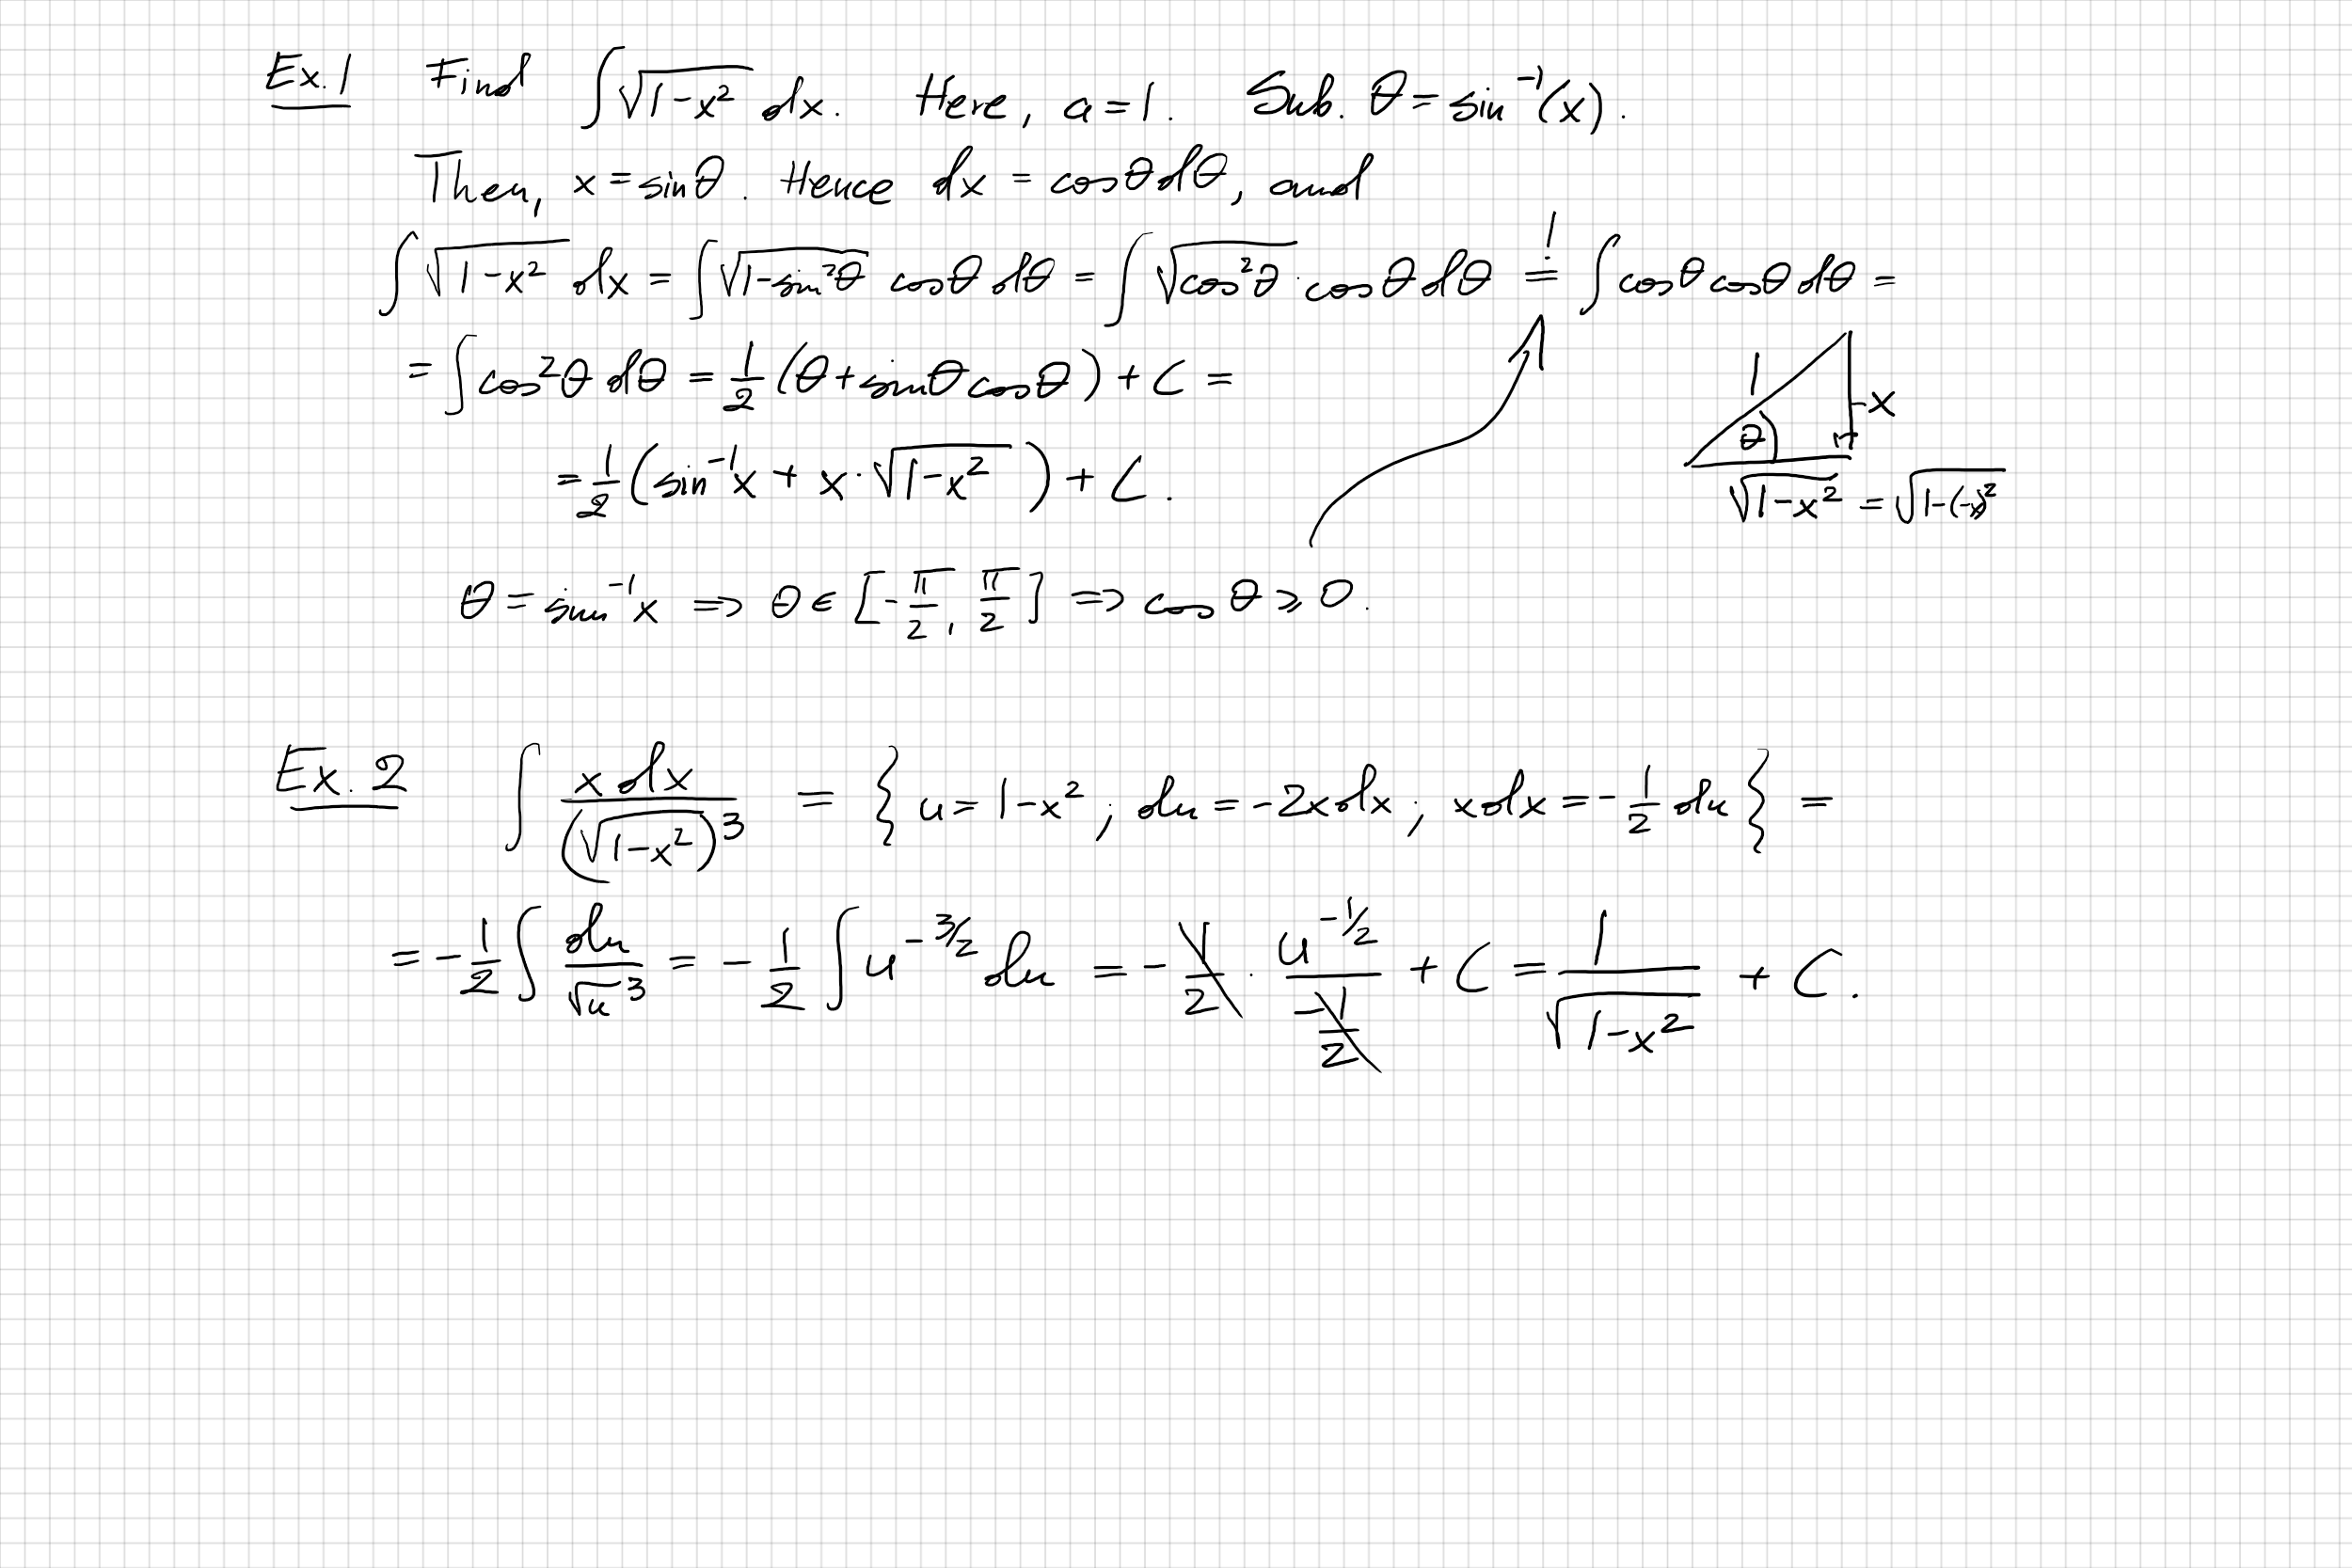 Ex. 1 Find ∫√(1-x²) dx. Here, a=1. Sub. θ = sin⁻¹(x).
Then, x = sinθ. Hence dx = cosθdθ, and
∫√(1-x²) dx = ∫√(1-sin²θ) cosθ dθ = ∫√(cos²θ) · cosθ dθ =! ∫cosθ cosθ dθ =
= ∫cos²θ dθ = 1/2 (θ + sinθ cosθ) + C =
1
-x
θ
= 1/2 (sin⁻¹x + x·√(1-x²)) + C.
√(1-x²) = √(1-(-x)²)
θ = sin⁻¹x ⇒ θ ∈ [-π/2, π/2] ⇒ cos θ ⩾ 0.
Ex. 2 ∫ x dx / (√(1-x²))³ = { u = 1-x²; du = -2xdx; xdx = -1/2 du } =
= -1/2 ∫ du/√u³ = -1/2 ∫ u^(-3/2) du = -1/2 · u^(-1/2) / (-1/2) + C = 1/√(1-x²) + C.